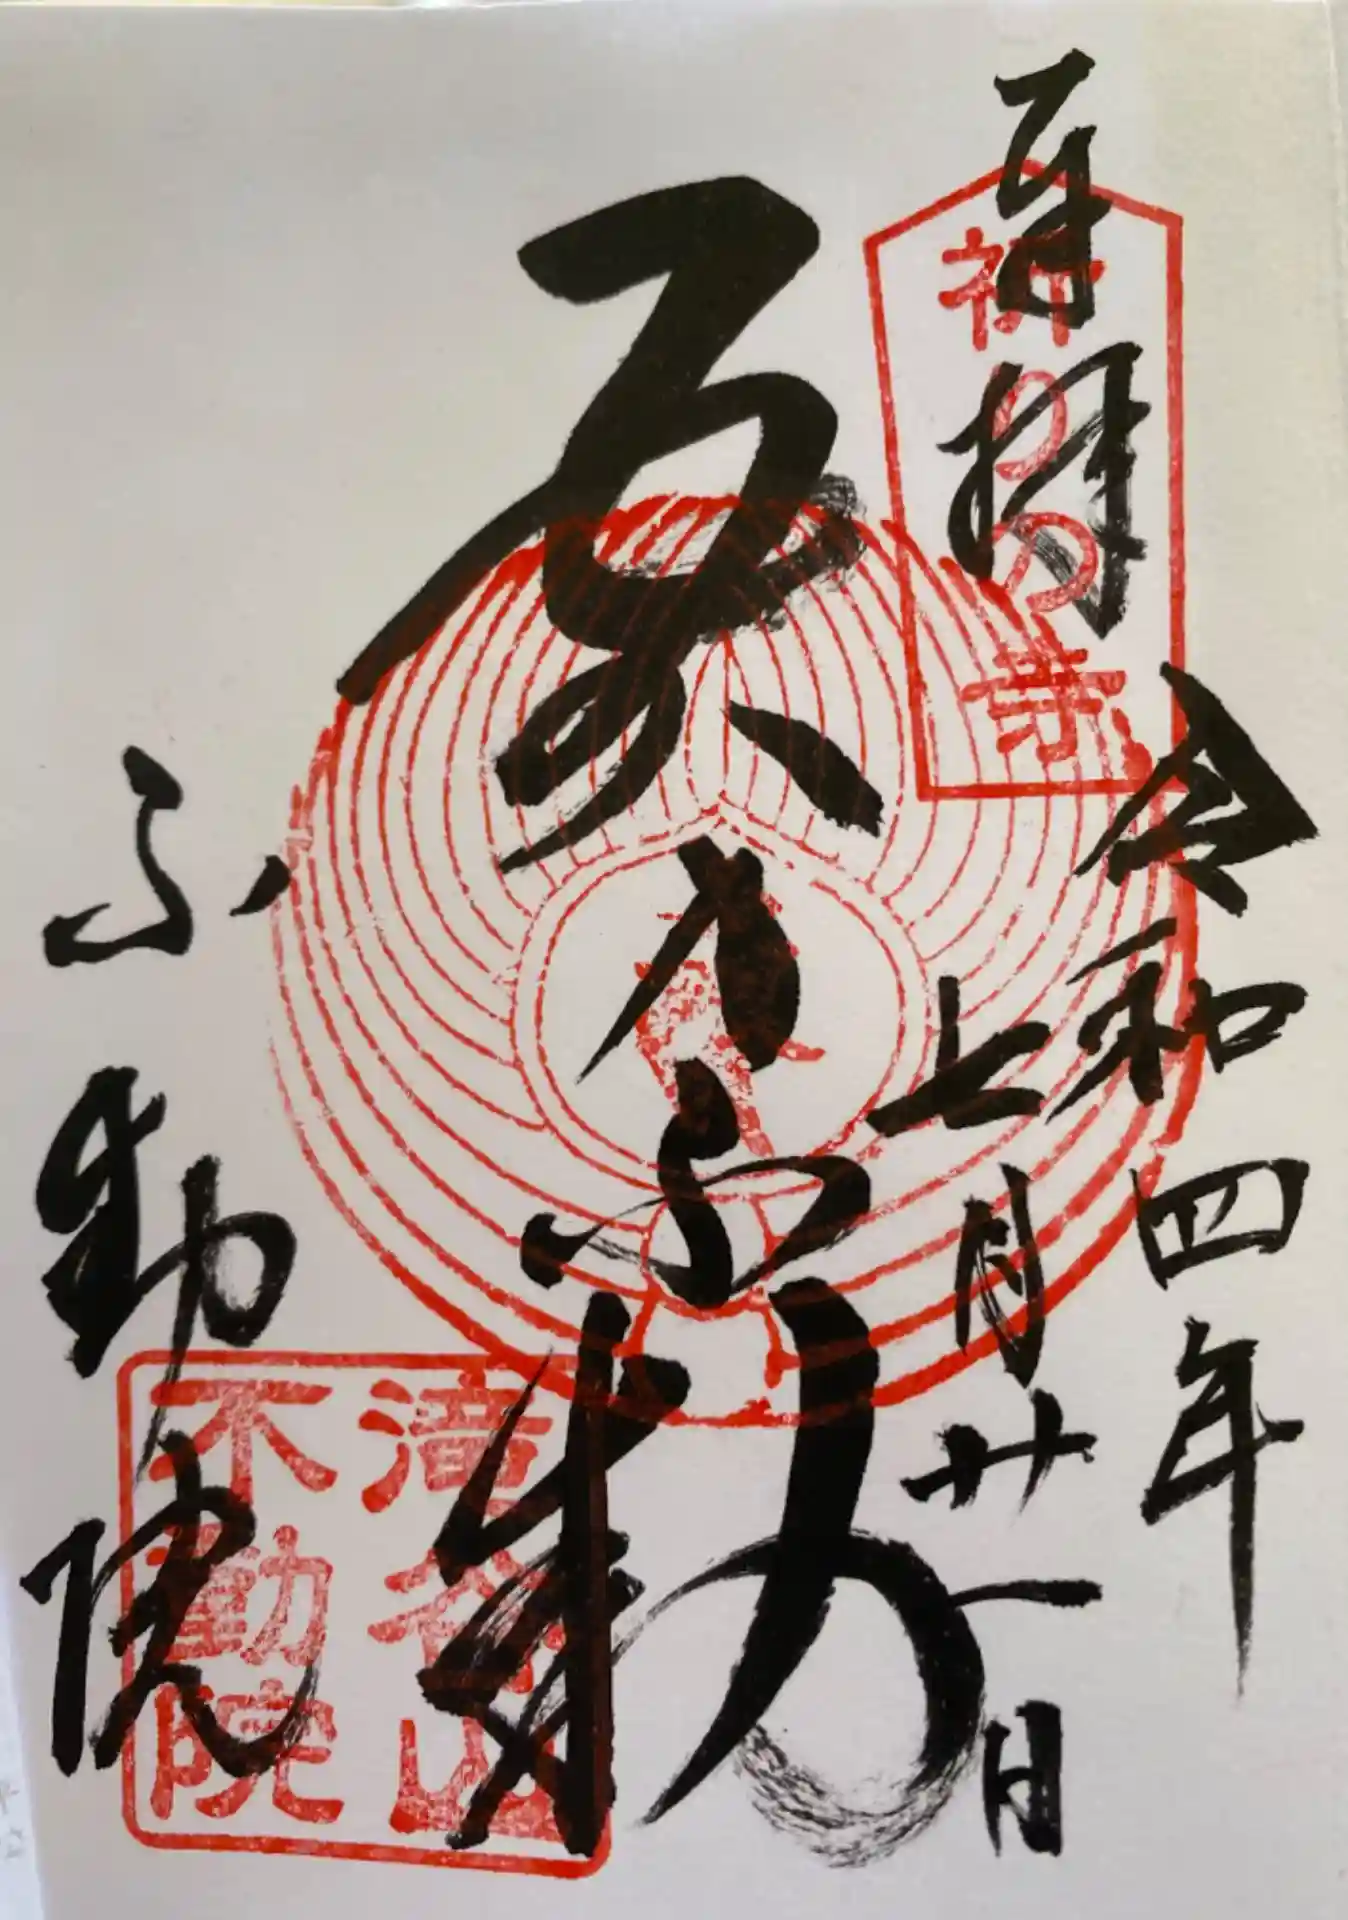 奉拝
祈りの寺
令和四年
七月廿一日
不動
不動院
谷山
不動院